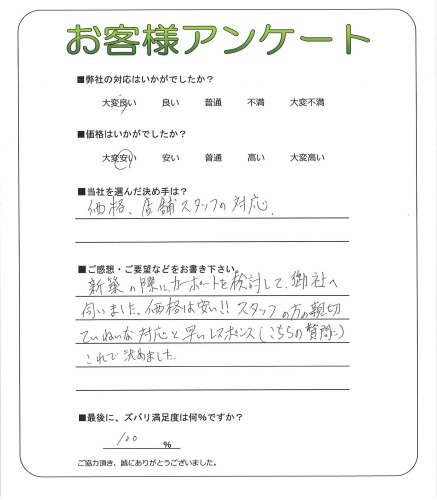 お客様アンケート
■弊社の対応はいかがでしたか？
大変良い 良い 普通 不満 大変不満
■価格はいかがでしたか？
大変安い 安い 普通 高い 大変高い
■当社を選んだ決め手は？
価格、店舗スタッフの対応、
■ご感想・ご要望などをお書き下さい。
新築の際に、カーポートを検討して、御社へ
伺いました、価格は安い!! スタッフの方の親切
ていねいな対応と早いレスポンス(こちらの質問に)
これで決めました.
■最後に、ズバリ満足度は何%ですか？
100 %
ご協力頂き、誠にありがとうございました。